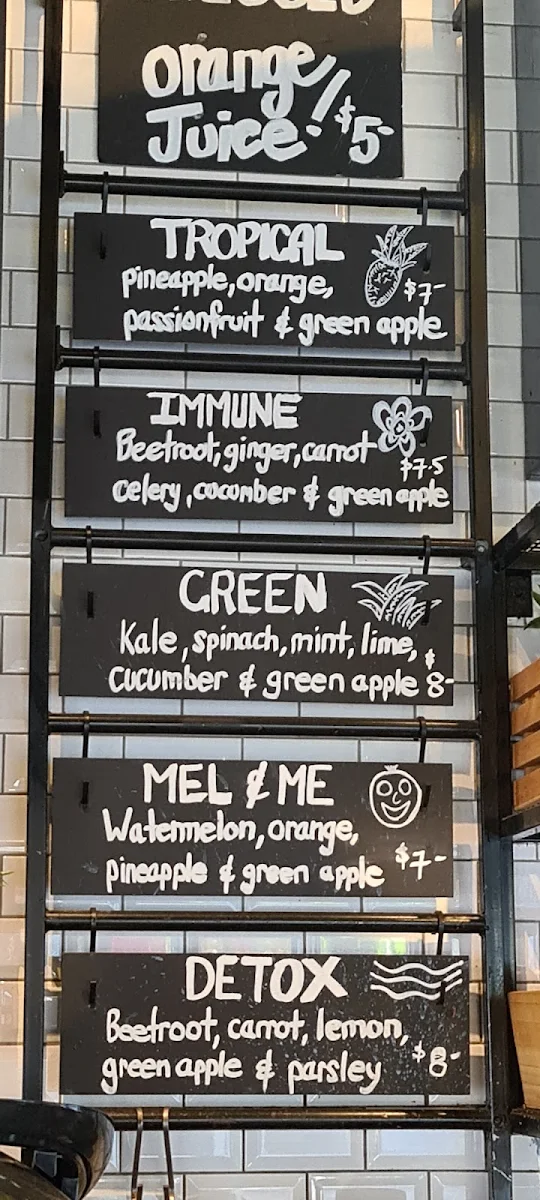 orange
Juice! $5-
TROPICAL
pineapple, orange,
$7-
passionfruit & green apple
IMMUNE
Beetroot, ginger, carrot
$7.5
celery, cucumber & green apple
GREEN
Kale, spinach, mint, lime,
$
cucumber & green apple 8-
MEL & ME
Watermelon, orange,
pineapple & green apple $7-
DETOX
Beetroot, carrot, lemon,
$8-
green apple & parsley